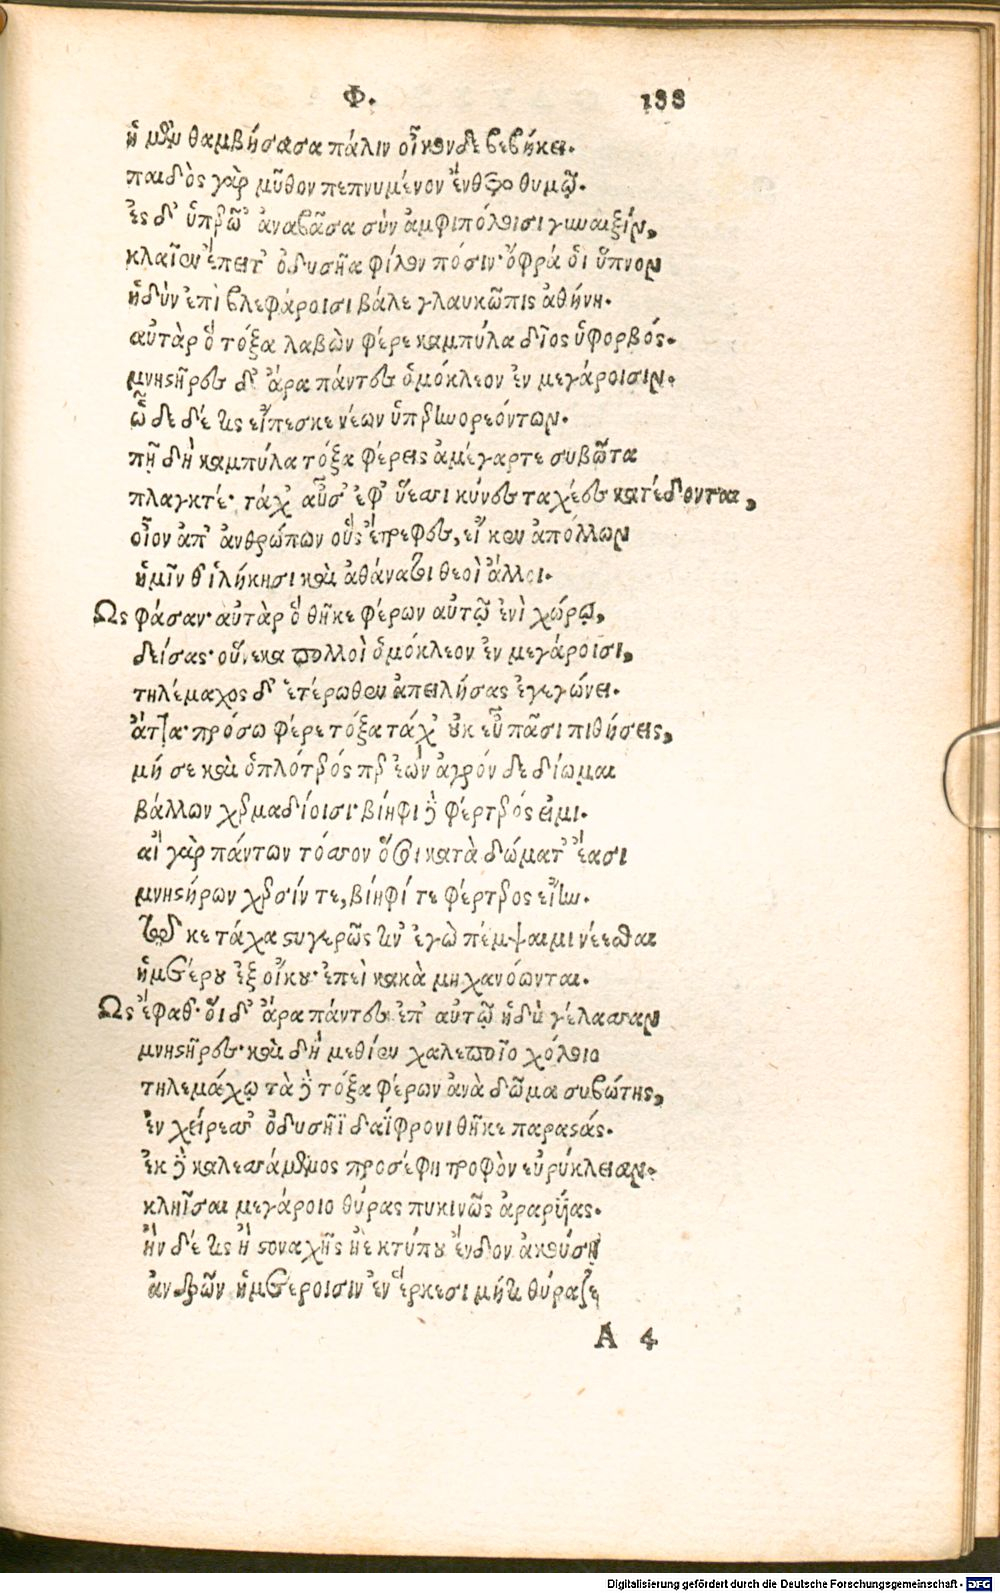 Φ. 188
ἡ μὲν θαμβήσασα πάλιν οἶκον δὲ βεβήκει.
παιδὸς γὰρ μῦθον πεπνυμένον ἔνθετο θυμῷ.
ἐς δ' ὑπερῷ' ἀναβᾶσα σὺν ἀμφιπόλοισι γυναιξίν,
κλαῖεν ἔπειτ' ὀδυσῆα φίλον πόσιν· ὄφρά ὁι ὕπνον
ἡδὺν ἐπὶ βλεφάροισι βάλε γλαυκῶπις ἀθήνη.
αὐτὰρ ὁ τόξα λαβὼν φέρε καμπύλα δῖος ὑφορβός.
μνηστῆρες δ' ἄρα πάντες ὁμόκλεον ἐν μεγάροισιν.
ὧδε δέ τις εἴπεσκε νέων ὑπερηνορεόντων.
πῆ δὴ καμπύλα τόξα φέρεις ἀμέγαρτε συβῶτα
πλαγκτέ· τάχ' αὖσ' ἐφ' ὕεσσι κύνες ταχέες κατέδονται,
οἶον ἀπ' ἀνθρώπων οὓς ἔτρεφες, εἴ κεν ἀπόλλων
ἡμῖν θ' ἱλήκησι καὶ ἀθάνατοι θεοὶ ἄλλοι.
Ως φάσαν· αὐτὰρ ὁ θῆκε φέρων αὐτῷ ἐνὶ χώρῳ,
δείσας· οὕνεκα πολλοὶ ὁμόκλεον ἐν μεγάροισι,
τηλέμαχος δ' ἑτέρωθεν ἀπειλήσας ἐγεγώνει.
ἄττα· πρόσω φέρε τόξα τάχ' οὐκ εὖ πᾶσι πιθήσεις,
μή σε καὶ ὁπλότερός περ ἐὼν ἀγρόν δε δίωμαι
βάλλων χερμαδίοισι· βίηφι δὲ φέρτερός εἰμι.
αἲ γὰρ πάντων τόσσον ὅσοι κατὰ δώματ' ἔασι
μνηστήρων χερσίν τε, βίηφί τε φέρτερος εἴην.
τῷ κε τάχα στυγερῶς τιν' ἐγὼ πέμψαιμι νέεσθαι
ἡμετέρου ἐξ οἴκου· ἐπεὶ κακὰ μηχανόωνται.
Ως ἔφαθ'· ὅι δ' ἄρα πάντες ἐπ' αὐτῷ ἡδὺ γέλασσαν
μνηστῆρες· καὶ δὴ μεθίεν χαλεποῖο χόλοιο
τηλεμάχῳ τὰ δὲ τόξα φέρων ἀνὰ δῶμα συβώτης,
ἐν χείρεσσ' ὀδυσῆϊ δαΐφρονι θῆκε παραστάς.
ἐκ δὲ καλεσσάμενος προσέφη τροφὸν εὐρύκλειαν.
κληῖσαι μεγάροιο θύρας πυκινῶς ἀραρυίας.
ἢν δέ τις ἢ στοναχῆς ἠὲ κτύπου ἔνδον ἀκούσῃ
ἀνδρῶν ἡμετέροισιν ἐν ἕρκεσι μήτι θύραζε
A 4
Digitalisierung gefördert durch die Deutsche Forschungsgemeinschaft - DFG